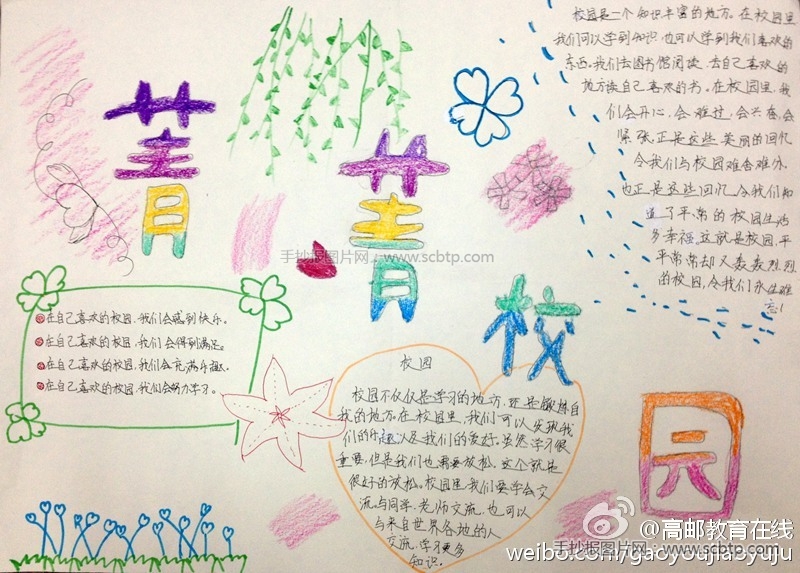 菁
菁
校
园
校园是一个知识丰富的地方。在校园里
我们可以学到知识,也可以学到我们喜欢的
东西。我们去图书馆阅读,去自己喜欢的
地方读自己喜欢的书。在校园里,我
们会开心,会难过,会兴奋,会
紧张,正是这些美丽的回忆
令我们与校园难舍难分
也正是这些回忆,令我们知
道了平常的校园生活
多幸福。这就是校园,平
平常常却又轰轰烈烈
的校园,令我们永生难
忘!
手抄报图片网·www.scbtp.com
在自己喜欢的校园,我们会感到快乐。
在自己喜欢的校园,我们会得到满足。
在自己喜欢的校园,我们会充满乐趣。
在自己喜欢的校园,我们会努力学习。
校园
校园不仅仅是学习的地方,还是锻炼自
我的地方。在校园里,我们可以发现我
们的乐趣以及我们的爱好。虽然学习很
重要,但是我们也需要放松。这个就是
很好的放松。校园里我们要学会交
流。与同学,老师交流,也可以
与来自世界各地的人
交流,学习更多
知识。
@高邮教育在线
手抄报图片网·www.scbtp.com
weibo.com/gaoyoujiaoyuju